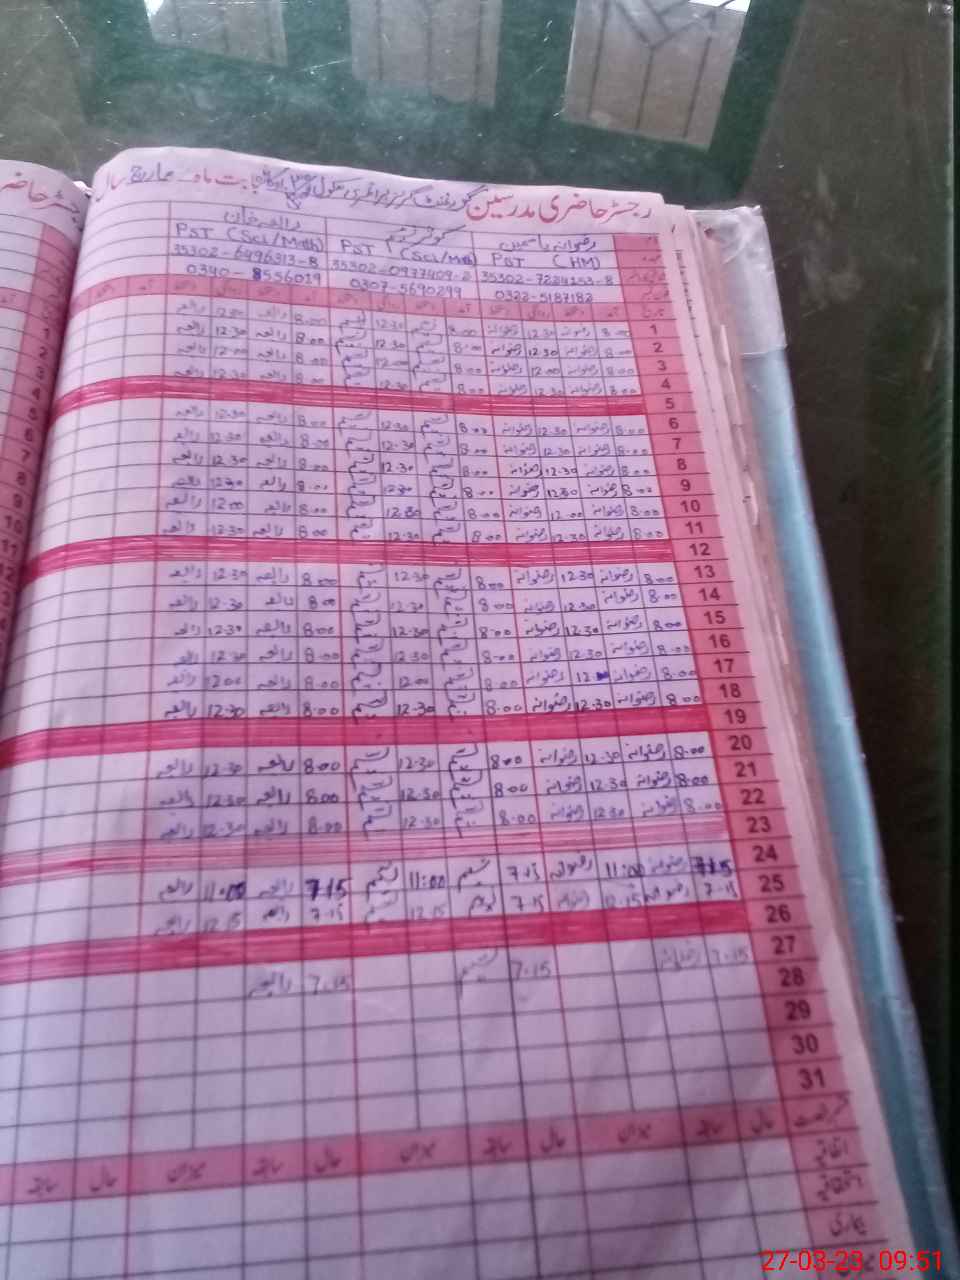 رجسٹر حاضری مدرسین گورنمنٹ گرلز پرائمری سکول بابت ماہ مارچ سال
رضوانہ یاسمین کوثر نسیم رابعہ خان
PST (HM) PST (Sci/Math) PST (Sci/Math)
35302-7224153-8 35302-0977409-2 35302-6496313-8
0322-5187182 0307-5690299 0340-8556019
1 8.00 رضوانہ 12.30 رضوانہ 8.00 نسیم 12.30 نسیم 8.00 رابعہ 12.30 رابعہ
2 8.00 رضوانہ 12.30 رضوانہ 8.00 نسیم 12.30 نسیم 8.00 رابعہ 12.30 رابعہ
3 8.00 رضوانہ 12.00 رضوانہ 8.00 نسیم 12.00 نسیم 8.00 رابعہ 12.00 رابعہ
4 8.00 رضوانہ 12.30 رضوانہ 8.00 نسیم 12.30 نسیم 8.00 رابعہ 12.30 رابعہ
5
6 8.00 رضوانہ 12.30 رضوانہ 8.00 نسیم 12.30 نسیم 8.00 رابعہ 12.30 رابعہ
7 8.00 رضوانہ 12.30 رضوانہ 8.00 نسیم 12.30 نسیم 8.00 رابعہ 12.30 رابعہ
8 8.00 رضوانہ 12.30 رضوانہ 8.00 نسیم 12.30 نسیم 8.00 رابعہ 12.30 رابعہ
9 8.00 رضوانہ 12.30 رضوانہ 8.00 نسیم 12.30 نسیم 8.00 رابعہ 12.30 رابعہ
10 8.00 رضوانہ 12.00 رضوانہ 8.00 نسیم 12.30 نسیم 8.00 رابعہ 12.00 رابعہ
11 8.00 رضوانہ 12.30 رضوانہ 8.00 نسیم 12.30 نسیم 8.00 رابعہ 12.30 رابعہ
12
13 8.00 رضوانہ 12.30 رضوانہ 8.00 نسیم 12.30 نسیم 8.00 رابعہ 12.30 رابعہ
14 8.00 رضوانہ 12.30 رضوانہ 8.00 نسیم 12.30 نسیم 8.00 رابعہ 12.30 رابعہ
15 8.00 رضوانہ 12.30 رضوانہ 8.00 نسیم 12.30 نسیم 8.00 رابعہ 12.30 رابعہ
16 8.00 رضوانہ 12.30 رضوانہ 8.00 نسیم 12.30 نسیم 8.00 رابعہ 12.30 رابعہ
17 8.00 رضوانہ رضوانہ 8.00 نسیم 12.00 نسیم 8.00 رابعہ 12.00 رابعہ
18 8.00 رضوانہ 12.30 رضوانہ 8.00 نسیم 12.30 نسیم 8.00 رابعہ 12.30 رابعہ
19
20 8.00 رضوانہ 12.30 رضوانہ 8.00 نسیم 12.30 نسیم 8.00 رابعہ 12.30 رابعہ
21 8.00 رضوانہ 12.30 رضوانہ 8.00 نسیم 12.30 نسیم 8.00 رابعہ 12.30 رابعہ
22 8.00 رضوانہ 12.30 رضوانہ 8.00 نسیم 12.30 نسیم 8.00 رابعہ 12.30 رابعہ
23
24 7.15 رضوانہ 11:00 رضوانہ 7.15 نسیم 11:00 نسیم 7.15 رابعہ 11:00 رابعہ
25 7.15 رضوانہ 12.15 رضوانہ 7.15 نسیم 12.15 نسیم 7.15 رابعہ 12.15 رابعہ
26
27 7.15 رضوانہ 7.15 نسیم 7.15 رابعہ
28
29
30
31
حال سابقہ میزان حال سابقہ میزان حال سابقہ میزان حال سابقہ
اتفاقیہ
استحقاقیہ
بیماری
27-03-23 09:51